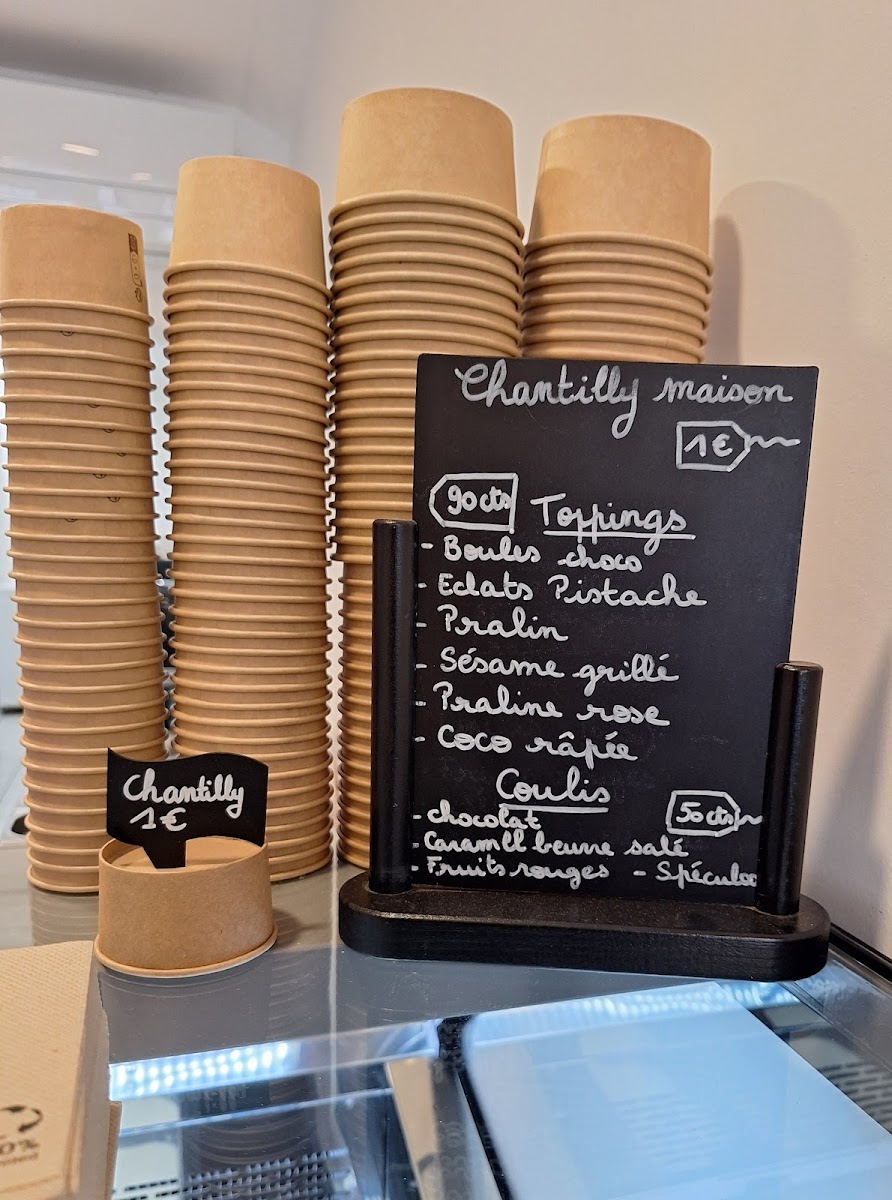 Chantilly maison
1€
90cts Toppings
- Boules choco
- Eclats Pistache
- Pralin
- Sésame grillé
- Praline rose
- Coco râpée
Coulis
50cts
- chocolat
- Caramel beurre salé
- Fruits rouges - Spéculoo
Chantilly
1€